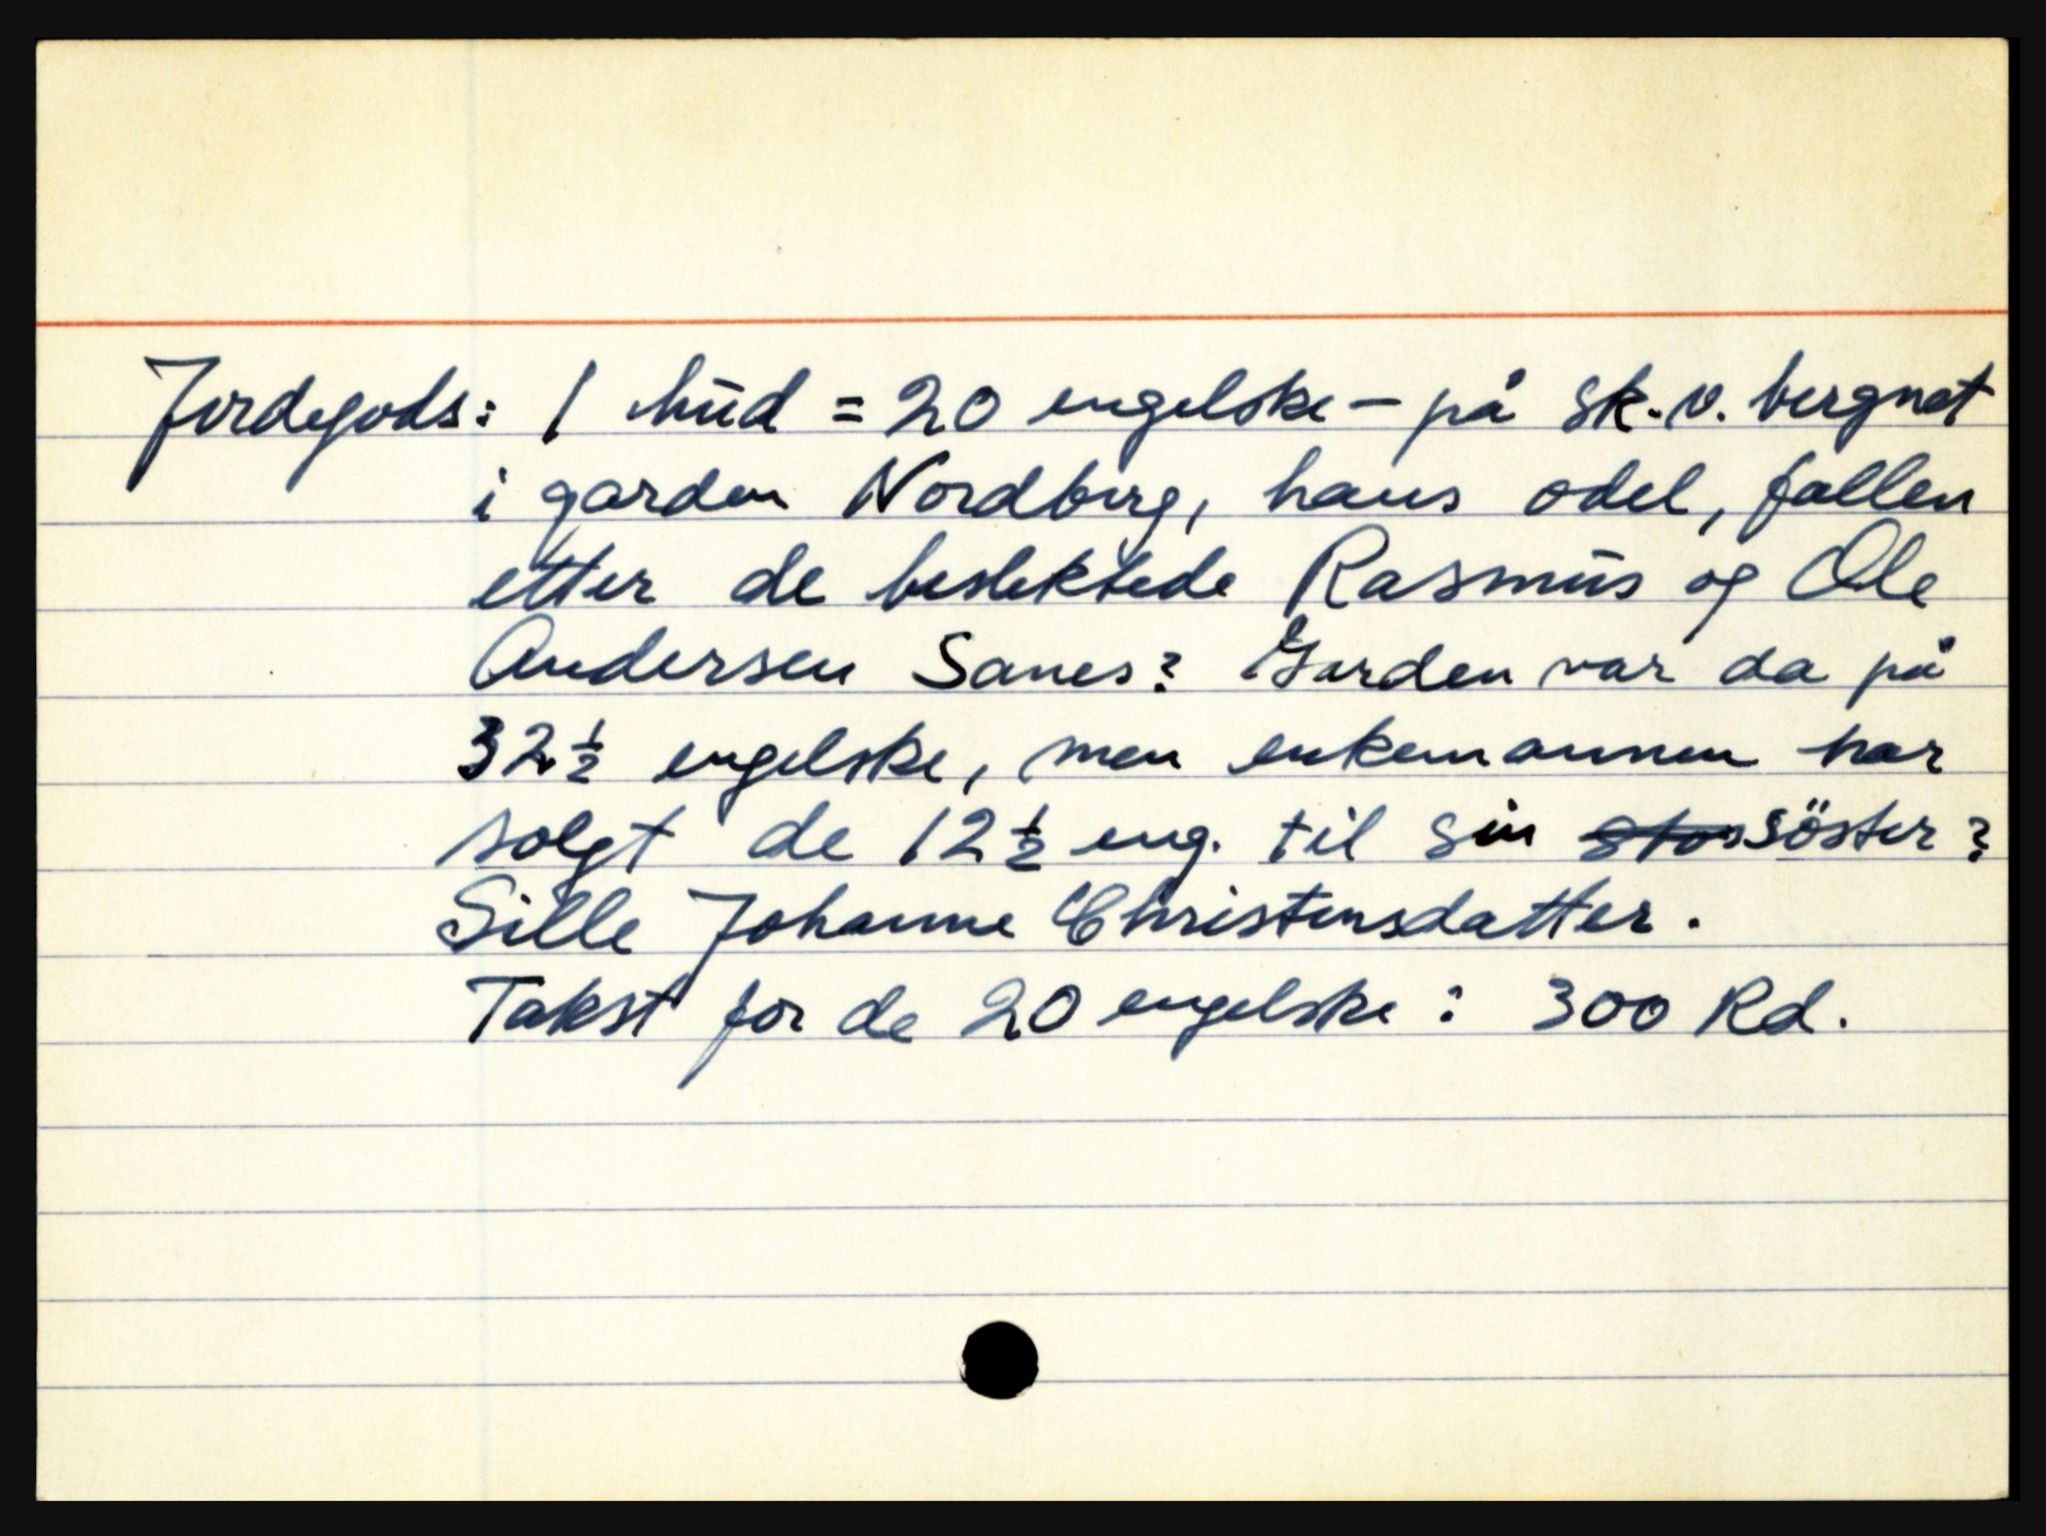 Jordegods: 1 hud = 20 engelske – på sk.v. bergnet
i garden Nordberg, hans odel, fallen
etter de beslektede Rasmus og Ole
Andersen Sanes? Garden var da på
32 ½ engelske, men enkemannen har
solgt de 12 ½ eng. til sin söster?
Sille Johanne Christensdatter.
Takst for de 20 engelske: 300 Rd.